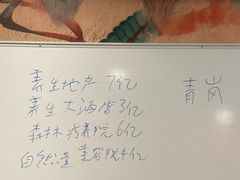 养生地产 7亿
养生大海伊3亿
森林疗养院 6亿
自然堂 美容院4亿
青岗